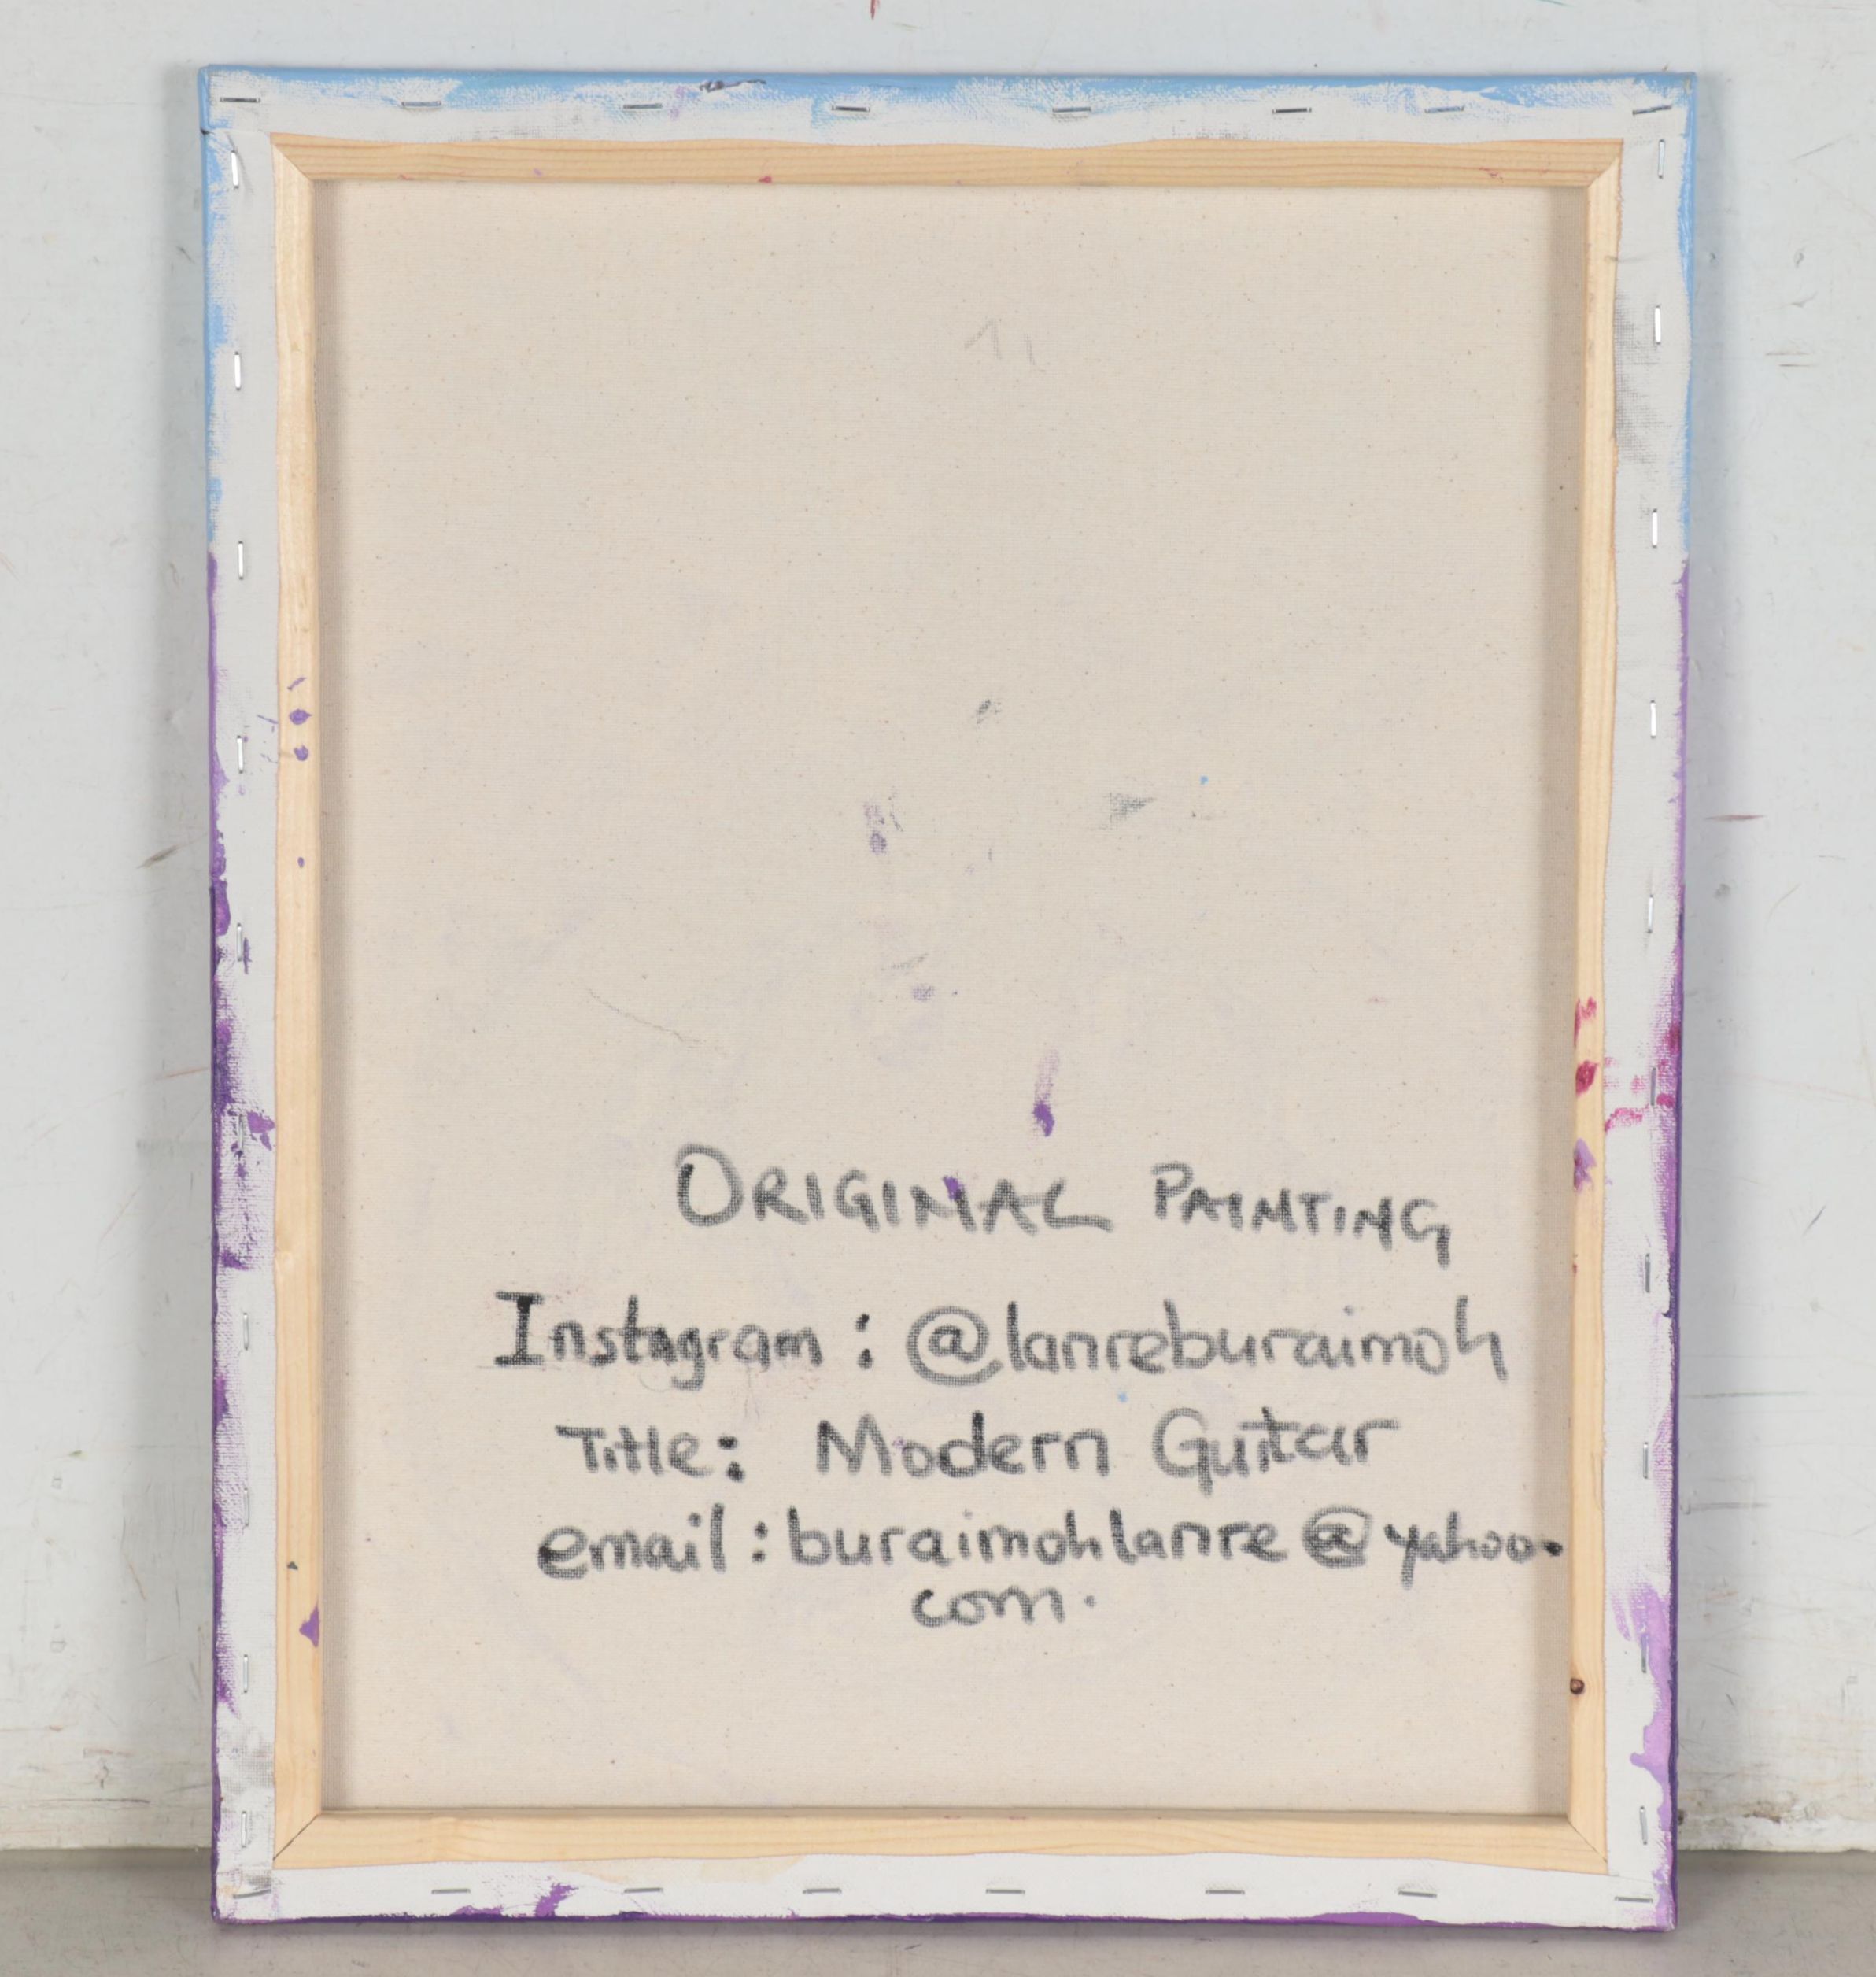 ORIGINAL PAINTING
Instagram : @lanreburaimoh
Title: Modern Guitar
email : buraimohlanre@yahoo.
com.